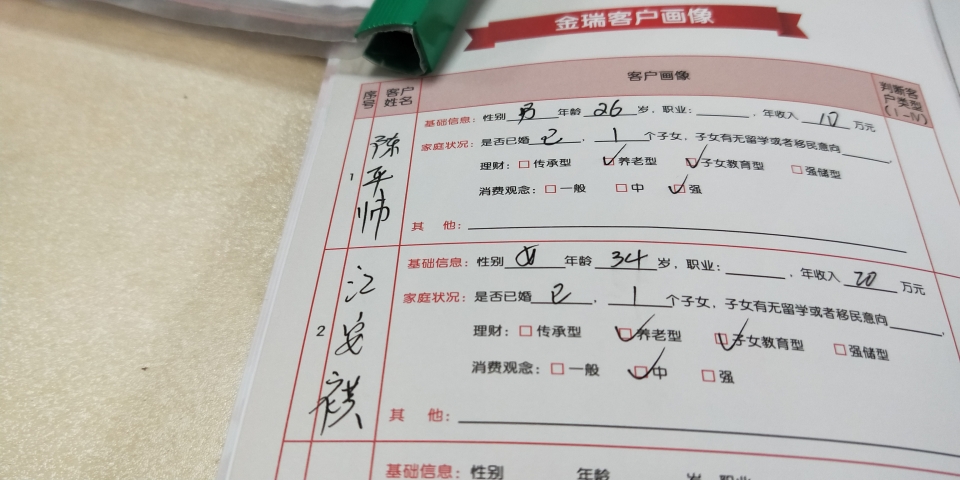 金瑞客户画像
序号 客户姓名 客户画像 判断客户类型(Ⅰ-Ⅳ)
1 陈平帅
基础信息：性别 男 年龄 26 岁，职业：______，年收入 10 万元
家庭状况：是否已婚 已 ，1 个子女，子女有无留学或者移民意向______，
理财：□传承型 ☑养老型 ☑子女教育型 □强储型
消费观念：□一般 □中 ☑强
其 他：
2 江安祺
基础信息：性别 女 年龄 34 岁，职业：______，年收入 20 万元
家庭状况：是否已婚 已 ，1 个子女，子女有无留学或者移民意向______，
理财：□传承型 ☑养老型 ☑子女教育型 □强储型
消费观念：□一般 ☑中 □强
其 他：
基础信息：性别 年龄 岁，职业